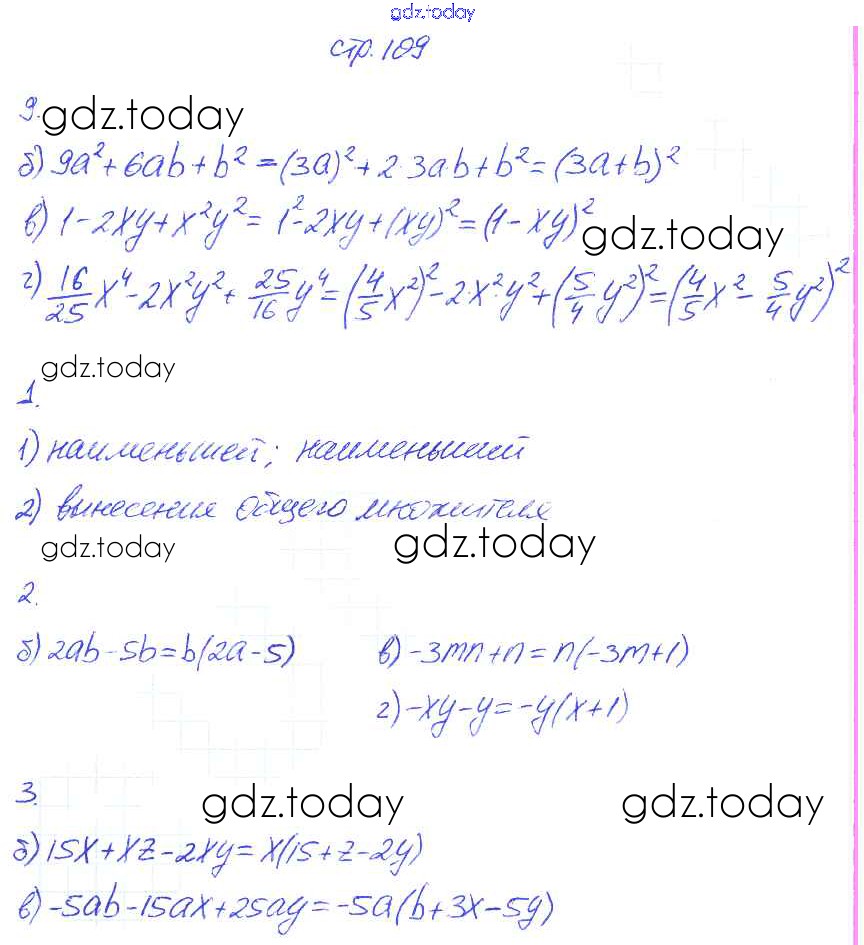 gdz.today
стр. 109
9. gdz.today
б) 9a² + 6ab + b² = (3a)² + 2·3ab + b² = (3a+b)²
в) 1 - 2xy + x²y² = 1² - 2xy + (xy)² = (1 - xy)²
gdz.today
г) 16/25 x⁴ - 2x²y² + 25/16 y⁴ = (4/5 x²)² - 2·x²·y² + (5/4 y²)² = (4/5 x² - 5/4 y²)²
gdz.today
1.
1) наименьшей; наименьшей
2) вынесение общего множителя
gdz.today gdz.today
2.
б) 2ab - 5b = b(2a - 5) в) -3mn + n = n(-3m + 1)
г) -xy - y = -y(x + 1)
3. gdz.today gdz.today
б) 15x + xz - 2xy = x(15 + z - 2y)
в) -5ab - 15ax + 25ay = -5a(b + 3x - 5y)